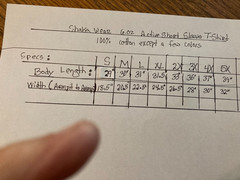 Shaka Wear 6oz Active Short Sleeve T-Shirt
100% cotton except a few colors
Specs:
S M L XL 2X 3X 4X 5X
Body Length: 29" 30" 31" 33" 36" 37" 39"
Width (Armpit to Armpit) 18.5" 20.5" 22.5" 24.5" 26.5" 28" 30" 32"